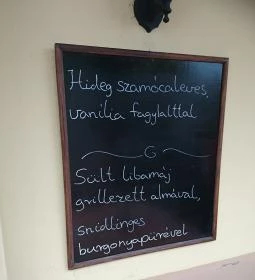 Hideg szamócaleves,
vanília fagylalttal
Sült libamáj
grillezett almával,
snidlinges
burgonyapürével